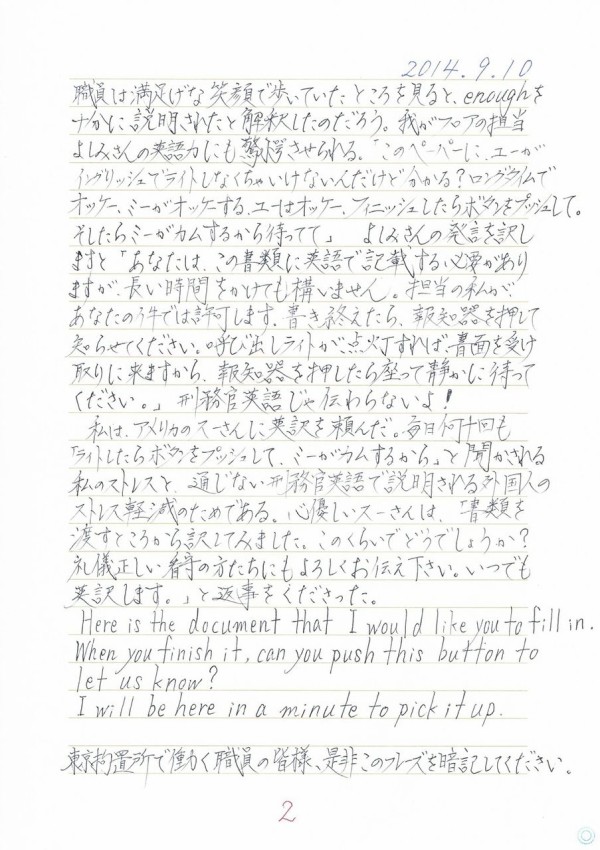 2014.9.10
職員は満足げな笑顔で歩いていたところを見ると、enoughを
ナカに説明されたと解釈したのだろう。我がフロアの担当
よしみさんの英語力にも驚愕させられる。「このペーパーに、ユーが
イングリッシュでライトしなくちゃいけないんだけど分かる？ロングタイムで
オッケー、ミーがオッケーする、ユーはオッケー、フィニッシュしたらボタンをプッシュして。
そしたらミーがカムするから待ってて」　よしみさんの発言を訳し
ますと「あなたは、この書類に英語で記載する必要があり
ますが、長い時間をかけても構いません。担当の私が、
あなたの件では許可します。書き終えたら、報知器を押して
知らせてください。呼び出しライトが点灯すれば、書面を受け
取りに来ますから、報知器を押したら座って静かに待って
ください。」　刑務官英語じゃ伝わらないよ！
私は、アメリカのスーさんに英訳を頼んだ。毎日何十回も
「ライトしたらボタンをプッシュして、ミーがカムするから」と聞かされる
私のストレスと、通じない刑務官英語で説明される外国人の
ストレス軽減のためである。心優しいスーさんは、「書類を
渡すところから訳してみました。このくらいでどうでしょうか？
礼儀正しい看守の方たちにもよろしくお伝え下さい。いつでも
英訳します。」と返事をくださった。
Here is the document that I would like you to fill in.
When you finish it, can you push this button to
let us know?
I will be here in a minute to pick it up.
東京拘置所で働く職員の皆様、是非このフレーズを暗記してください。
2